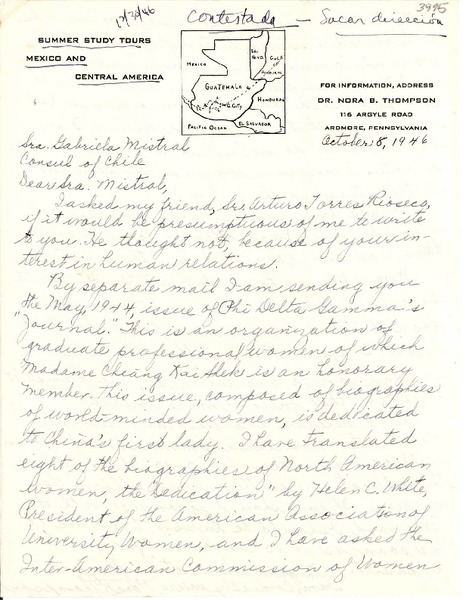 12/30/46 Contestada — Sacar dirección 3995
SUMMER STUDY TOURS
MEXICO AND
CENTRAL AMERICA
MEXICO
GUATEMALA
HONDURAS
EL SALVADOR
PACIFIC OCEAN
FOR INFORMATION, ADDRESS
DR. NORA B. THOMPSON
116 ARGYLE ROAD
ARDMORE, PENNSYLVANIA
October 8, 1946
Sra. Gabriela Mistral
Consul of Chile
Dear Sra. Mistral,
I asked my friend, Sr. Arturo Torres Rioseco,
if it would be presumptuous of me to write
to you. He thought not, because of your in-
terest in human relations.
By separate mail I am sending you
the May, 1944, issue of Phi Delta Gamma's
"Journal." This is an organization of
graduate professional women of which
Madame Chiang Kai Shek is an honorary
member. This issue, composed of biographies
of world-minded women, is dedicated
to China's first lady. I have translated
eight of the biographies of North American
women, the "Dedication" by Helen C. White,
President of the American Association of
University Women, and I have asked the
Inter-American Commission of Women